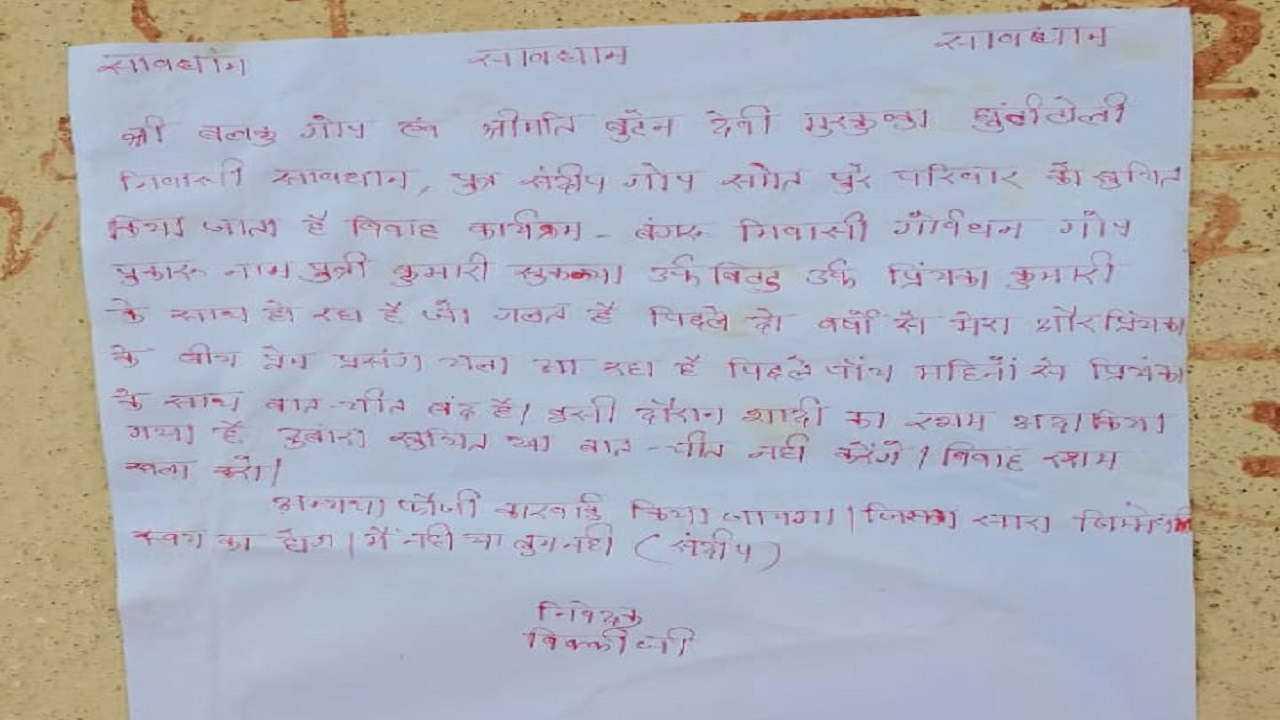 सावधान सावधान सावधान
श्री बलकु गोप एवं श्रीमति बुटेन देवी मुरकुण्डा
निवासी सावधान, पुत्र संदीप गोप समेत पुरे परिवार को सुचित
किया जाता है विवाह कार्यक्रम - बंगरू निवासी गोर्वधन गोप
नाम पुत्री कुमारी उर्फ उर्फ प्रियंका कुमारी
के साथ हो रहा है जो गलत है पिछले दो वर्षों से मेरा और प्रियंका
के बीच प्रेम प्रसंग चला आ रहा है पिछले पाँच महिनों से प्रियंका
के साथ बात-चीत बंद है। इसी दौरान शादी का रशम अदा किया
गया है दुबारा सुचित या बात-चीत नही करेंगे। विवाह रशम
करो।
अन्यथा फौजी कारवाई किया जायगा। जिसका सारा
स्वयं का होगा। मैं नही या तुम नही (संदीप)
निवेदक
विक्की जी